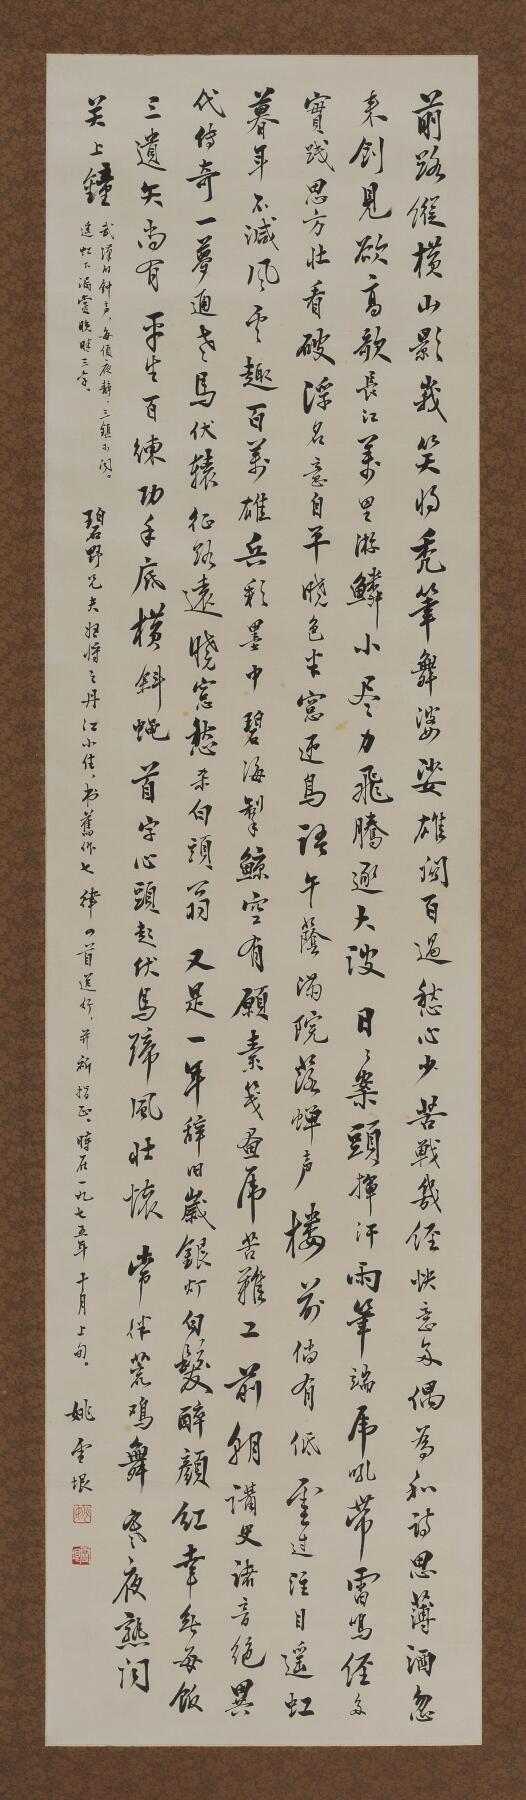 前路纵横山影峩笑将秃笔舞婆娑雄关百过愁心少苦战几经快意多偶为和诗思薄酒忽
来剑见欲高歌长江万里游鳞小尽力飞腾逐大波日日案头挥汗雨笔端虎吼带雷鸣经多
实践思方壮看破浮名意自平晓色半窗迎鸟语午荫满院落蝉声楼前倘有低云过注目遥虹
暮年不减风云趣百万雄兵彩墨中碧海掣鲸空有愿素笺画虎苦难工前朝讲史诸音绝异
代传奇一梦通老马伏辕征路远晓窗愁杀白头翁又是一年辞旧岁银灯白发醉颜红幸无每饭
三遗矢尚有平生百练功手底横斜蝇首字心头起伏马蹄风壮怀常伴荒鸡舞寒夜熟闻
关上钟
武汉的钟声，每值夜静，三镇可闻。
碧野兄夫妇将之丹江小住，书旧作七律四首送行，并祈指正。时在一九七五年十月上旬。
姚雪垠